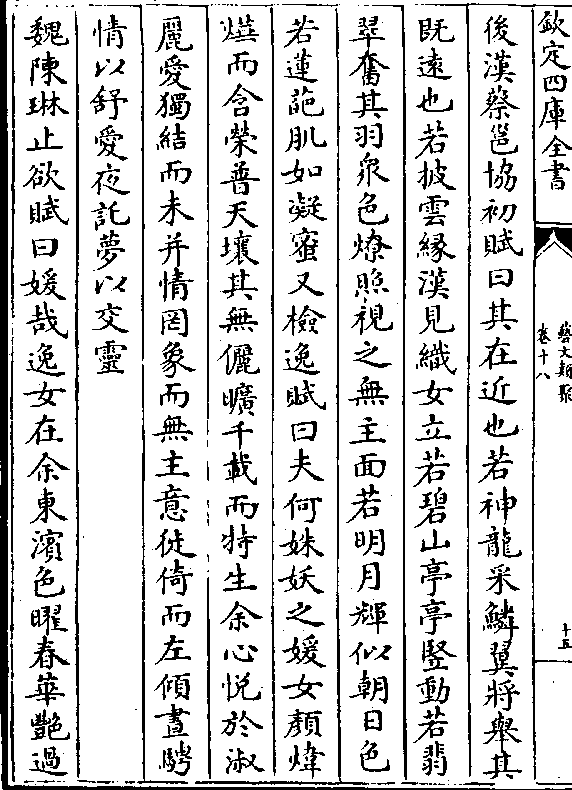 欽定四庫全書
藝文類聚
卷十八
十五
後漢蔡邕協初賦曰其在近也若神龍采鱗翼將舉其
既遠也若披雲緣漢見織女立若碧山亭亭豎動若翡
翠奮其羽衆色燎照視之無主面若明月輝似朝日色
若蓮葩肌如凝蜜又檢逸賦曰夫何姝妖之媛女顔煒
燁而含榮普天壤其無儷曠千載而特生余心悦於淑
麗愛獨結而未并情罔象而無主意徙倚而左傾晝騁
情以舒愛夜託夢以交靈
魏陳琳止欲賦曰媛哉逸女在余東濱色曜春華艷過